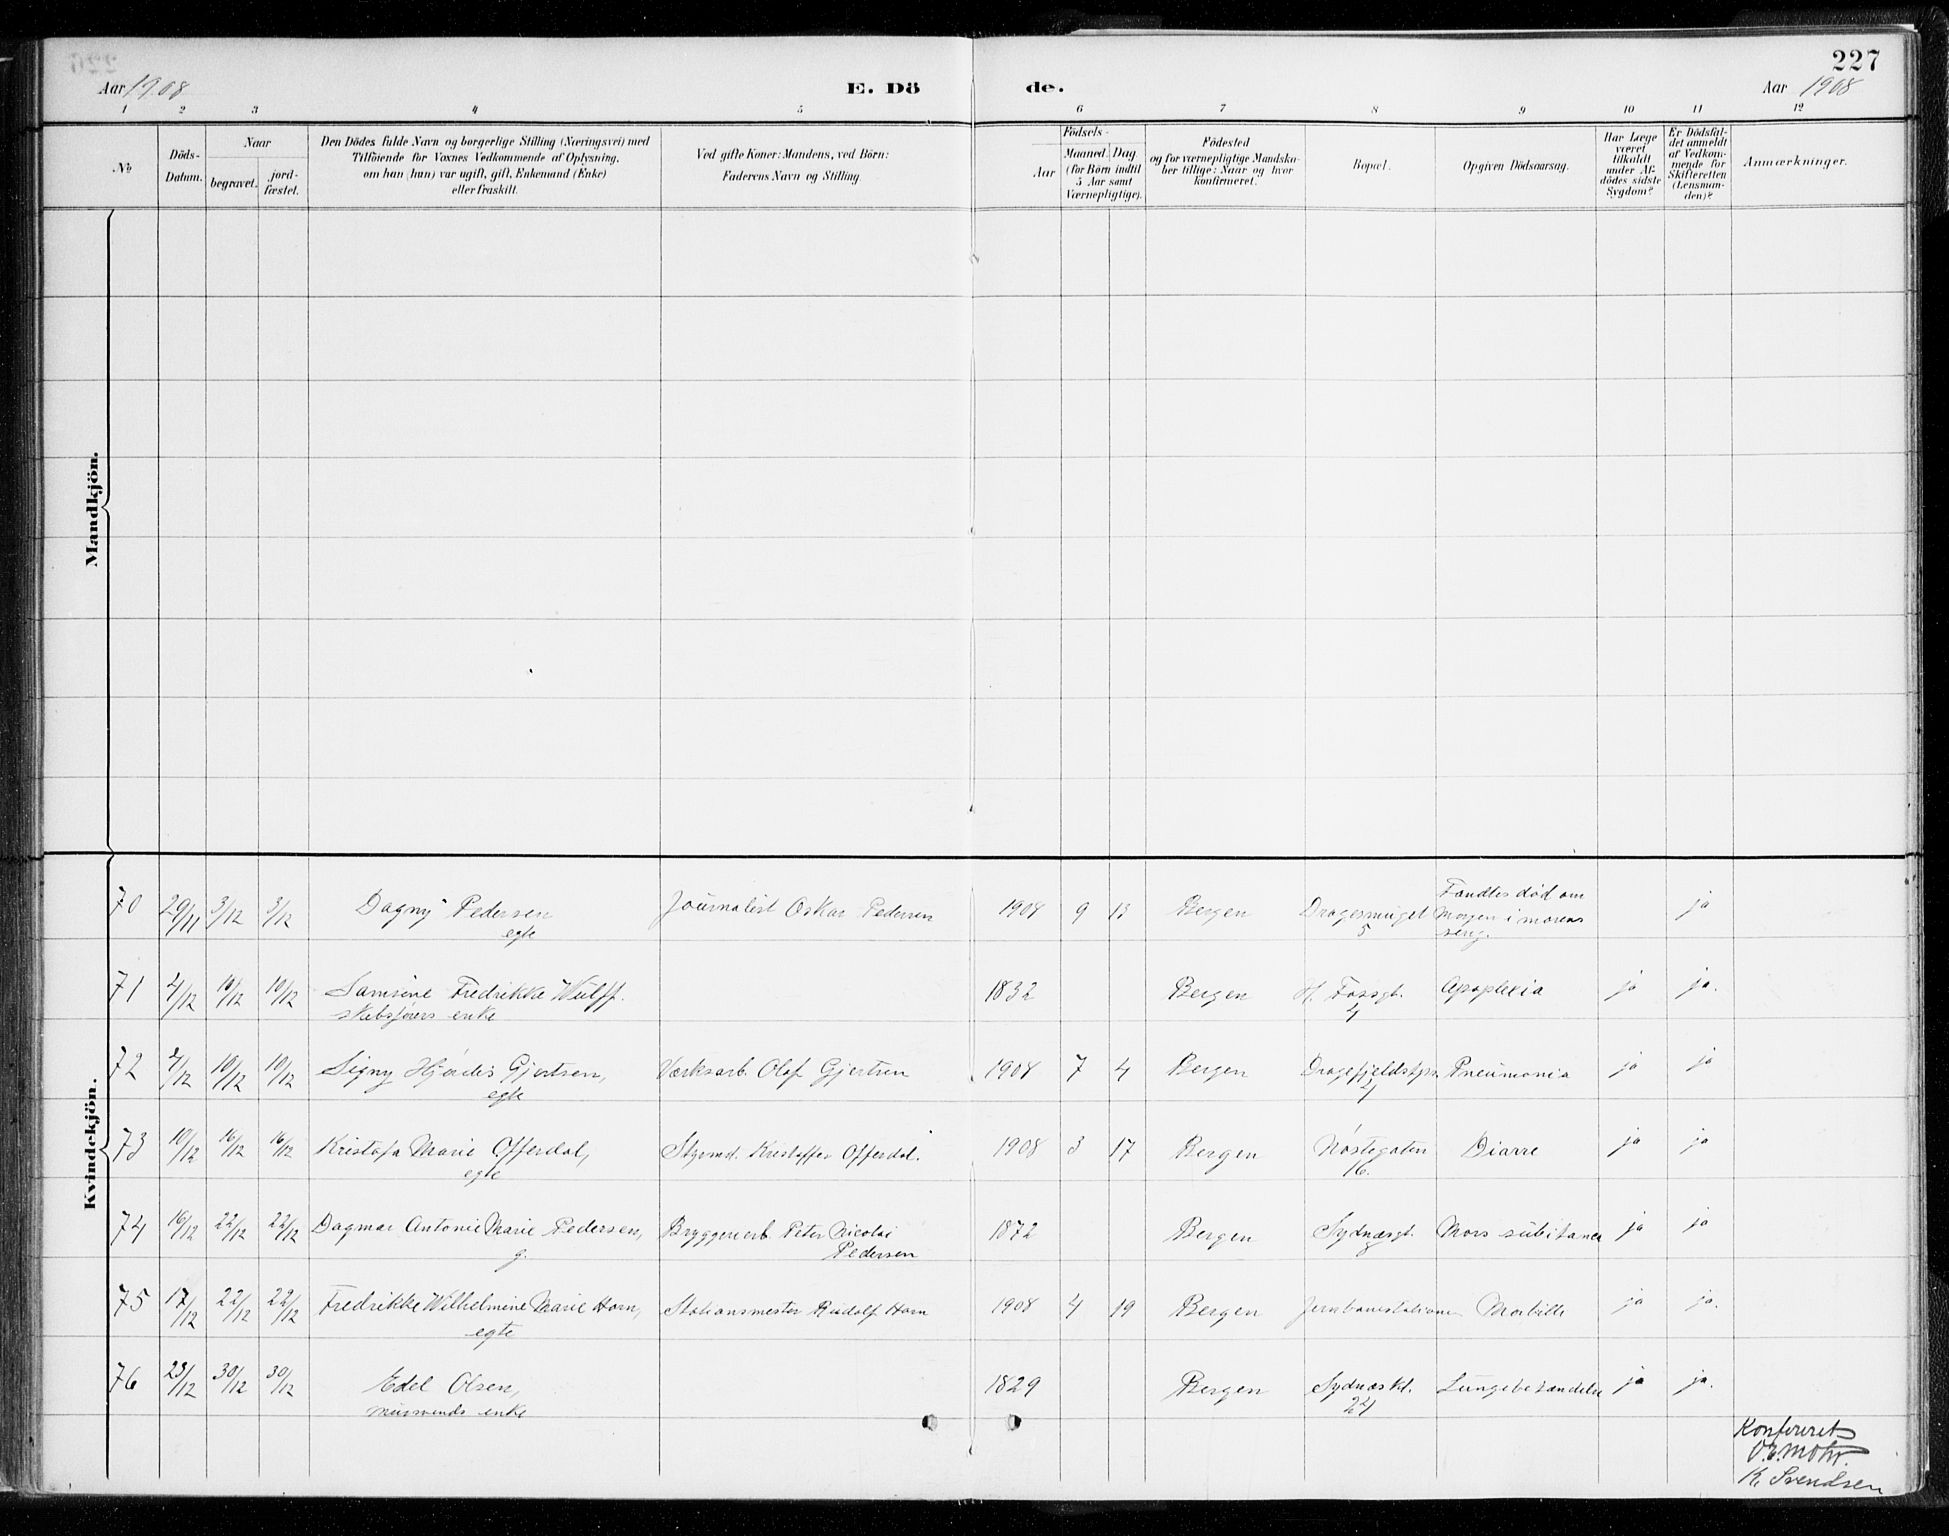 227
Aar 1908
E. Dö
de.
Aar 1908
1 2 3 4 5 6 7 8 9 10 11 12
No
Döds-
Datum.
Naar
begravet.
jord-
fæstet.
Den Dödes fulde Navn og borgerlige Stilling (Næringsvei) med
Tilföiende for Voxnes Vedkommende af Oplysning,
om han (hun) var ugift, gift, Enkemand (Enke)
eller fraskilt.
Ved gifte Koner: Mandens, ved Börn:
Faderens Navn og Stilling.
Födsels-
Aar
Maaned. Dag
(for Börn indtil
5 Aar samt
Værnepligtige).
Födested
og for værnepligtige Mandska-
ber tillige: Naar og hvor
konfirmeret.
Bopæl.
Opgiven Dödsaarsag.
Har Læge
været
tilkaldt
under Af-
dödes sidste
Sygdom?
Er Dödsfal-
det anmeldt
af Vedkom-
mende for
Skifteretten
(Lensman-
den)?
Anmærkninger.
Mandkjön.
Kvindekjön.
70 29/11 3/12 3/12 Dagny Pedersen Journalist Oskar Pedersen 1908 9 13 Bergen Dragesmuget Fandtes død om ja
egte 5 Morgen i morens
seng.
71 4/12 10/12 10/12 Samsine Fredrikke Wulff. 1832 Bergen H. Fossgt. Apoplexia ja ja.
skibsførers enke 4
72 4/12 10/12 10/12 Signy Hjørdis Gjertsen, Værksarb. Olaf Gjertsen 1908 7 4 Bergen Dragefjeldstpr. Pneumonia ja ja
egte
73 10/12 16/12 16/12 Kristofa Marie Offerdal, Styrmd. Kristoffer Offerdal. 1908 3 17 Bergen Nøstegaten Diarre ja ja
egte 16.
74 16/12 22/12 22/12 Dagmar Antonie Marie Pedersen, Bryggeriarb. Peter Nicolai 1872 Bergen Sydnæsgt. Mors subitanea ja ja
g. Pedersen 8
75 17/12 22/12 22/12 Fredrikke Wilhelmine Marie Horn, Stationsmester Rudolf Horn 1908 4 19 Bergen Jernbanestationen Morbilli ja ja.
egte
76 23/12 30/12 30/12 Edel Olsen, 1829 Bergen Sydnæskl. Lungebetændelse ja ja.
mursvends enke 24
Konfereret
O. E. Mohr.
K. Svendsen